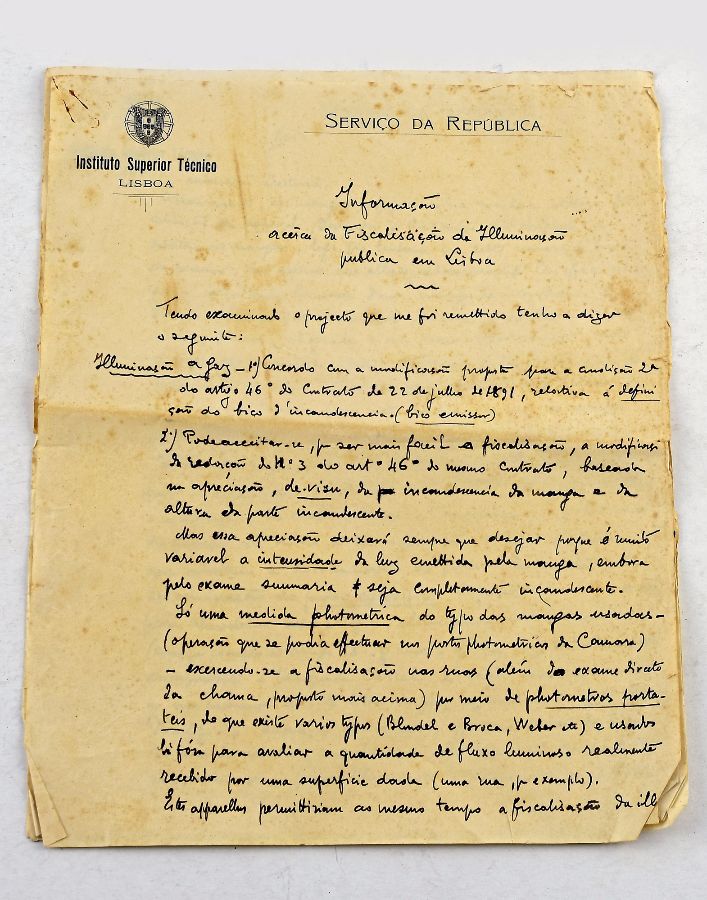 SERVIÇO DA REPÚBLICA
Instituto Superior Técnico
LISBOA
Informação
acêrca da Fiscalisação da Illuminação
publica em Lisboa
Tendo examinado o projecto que me foi remettido tenho a dizer
o seguinte:
Illuminação a gaz – 1º) Concordo com a modificação proposta para a condição 2ª
do artigo 46º do Contrato de 22 de julho de 1891, relativa á defini
ção do bico d'incandescencia. (bico emissor)
2º) Pode acceitar-se, pr ser mais facil a fiscalisação, a modificação
da redacção do Nº 3 do artº 46º do mesmo Contrato, baseada
na apreciação, de-visu, da incandescencia da manga e da
altura da parte incandescente.
Mas essa apreciação deixará sempre que desejar porque é muito
variavel a intensidade da luz emettida pela manga, embora
pelo exame summario seja completamente incandescente.
Só uma medida photometrica do typo das mangas usadas –
(operação que se podia effectuar nos postos photometricos da Camara)
– exercendo-se a fiscalisação nas ruas (além do exame directo
da chama, proposto mais acima) por meio de photometros porta-
teis, de que existe varios typos (Blondel e Broca, Weber etc) e usados
lá fóra para avaliar a quantidade de fluxo luminoso realmente
recebido por uma superficie dada (uma rua, pr exemplo).
Estes apparelhos permittiriam ao mesmo tempo a fiscalisação da ill